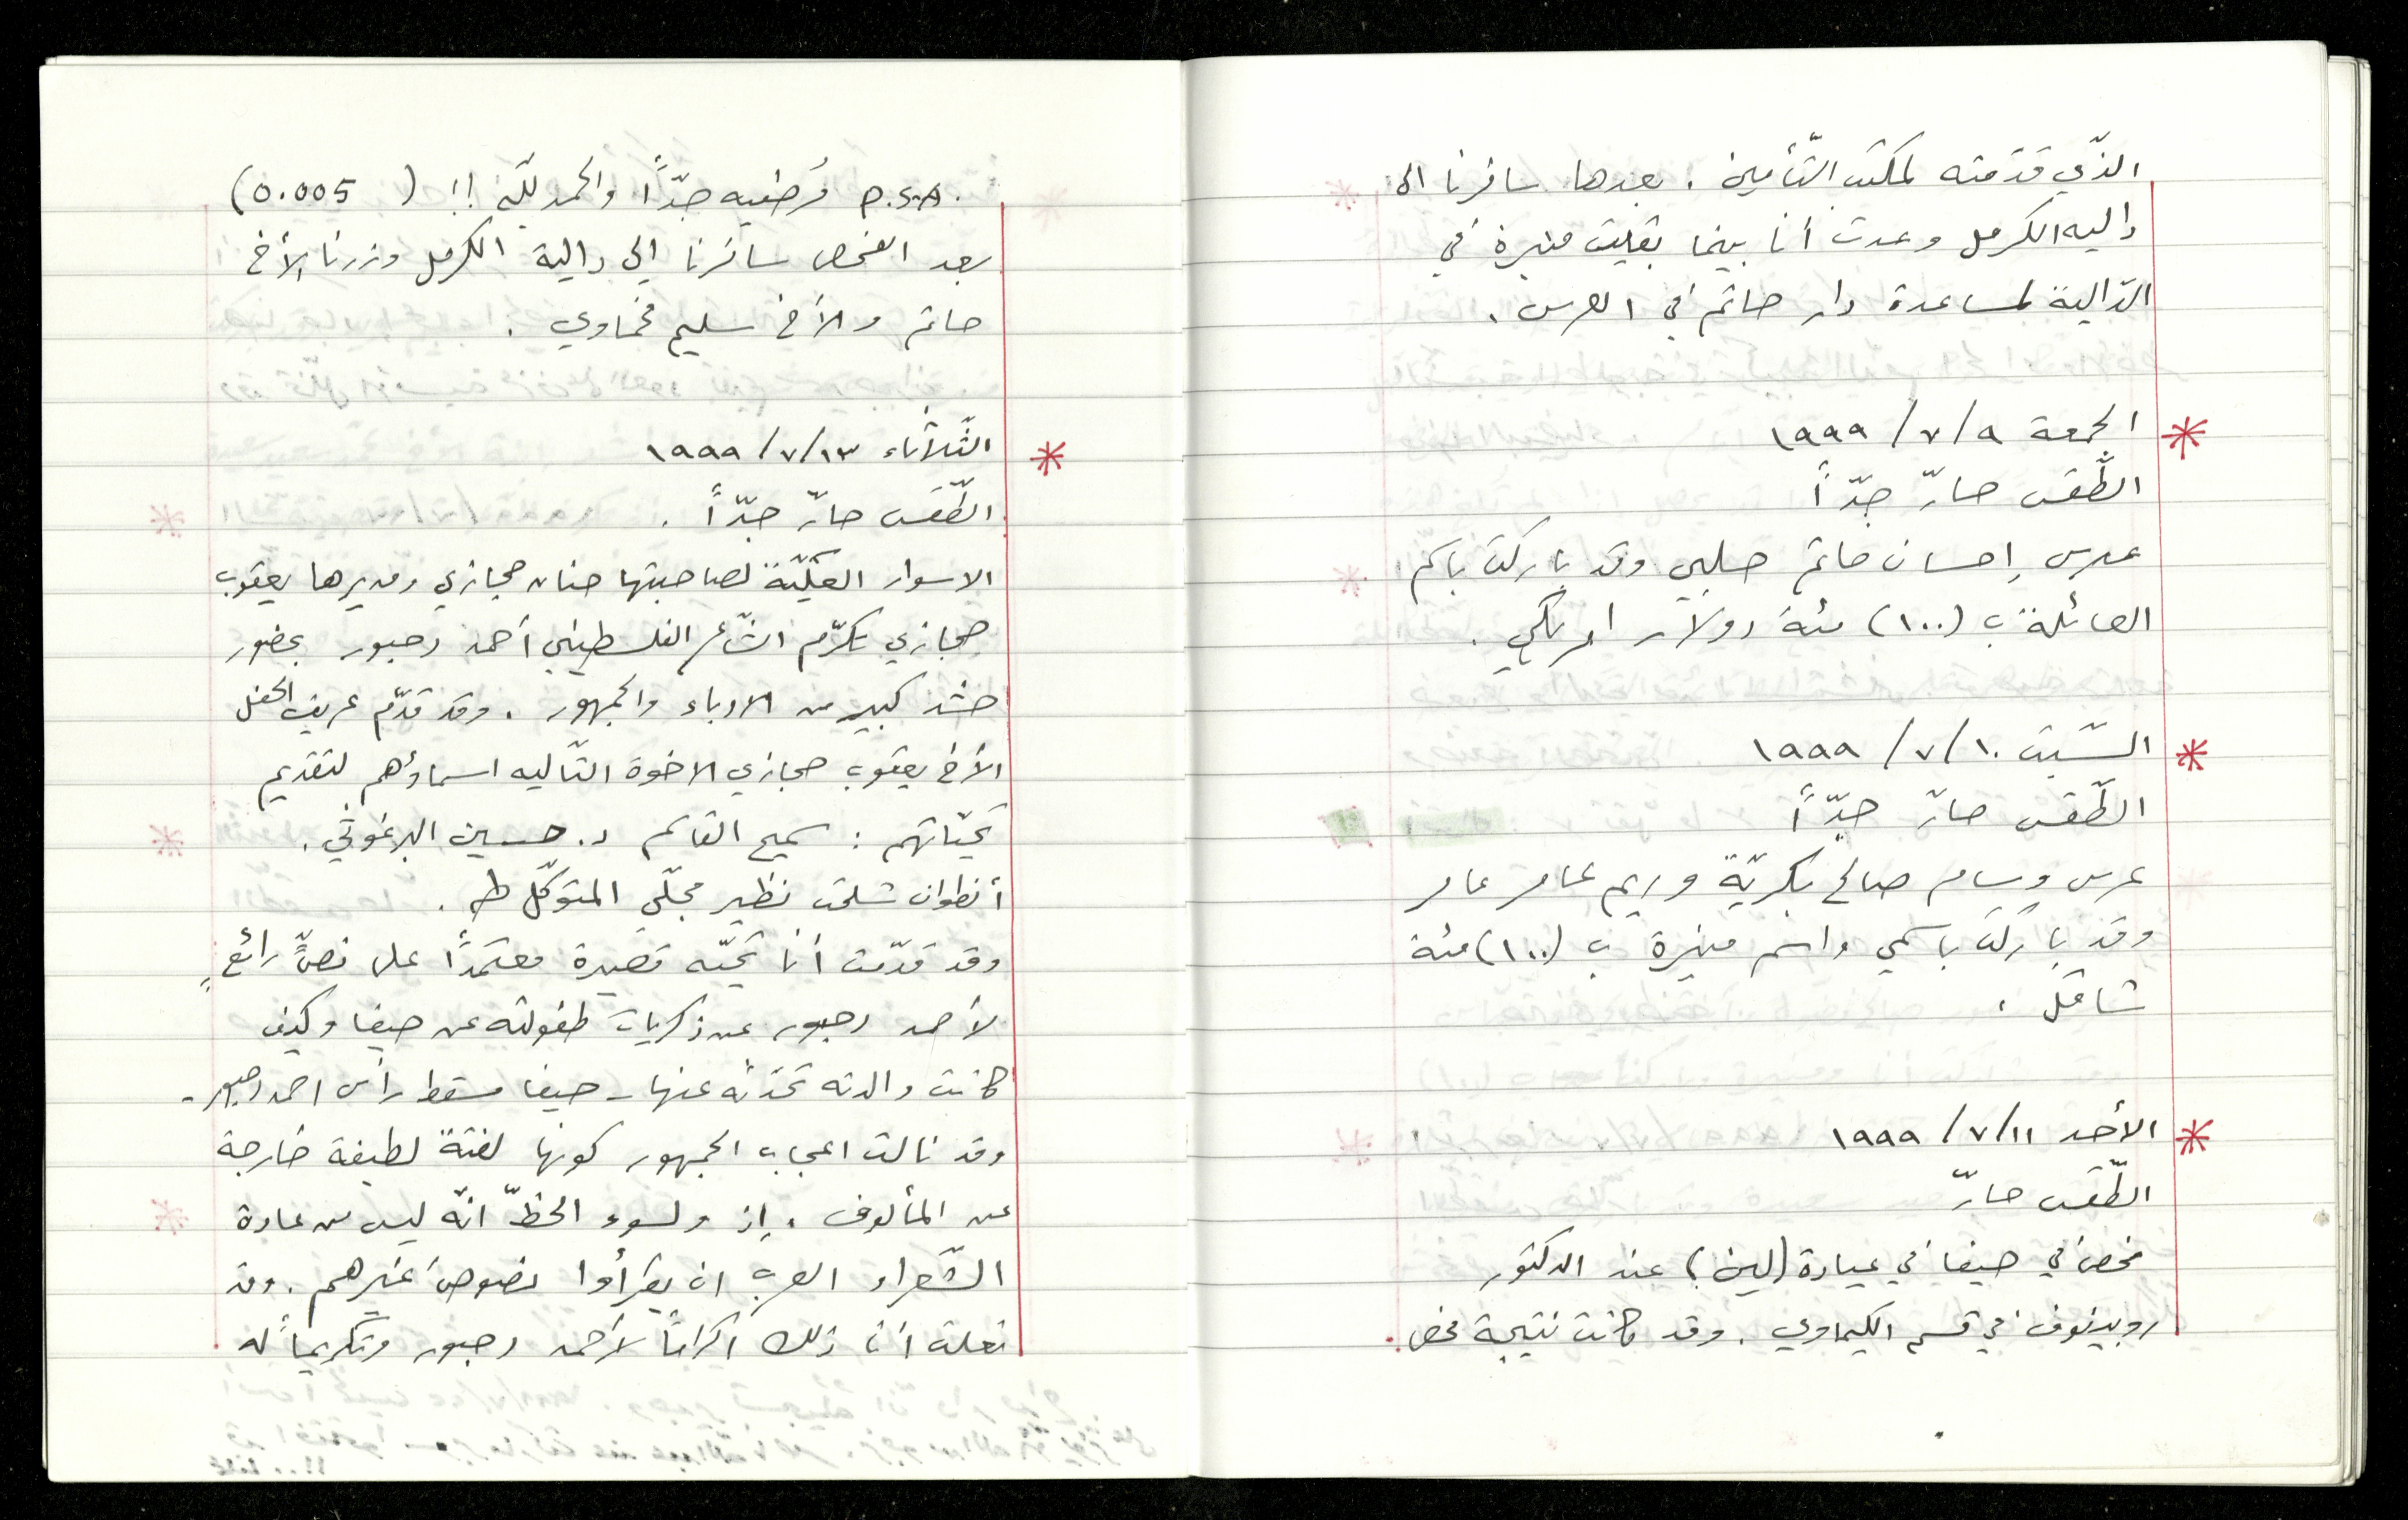 الذّي قدّمته لمكتب التّأمين. بعدها سافرنا الى
داليه الكرمل وعدت أنا بينما بقيت منيرة في
الدّالية لمساعدة دار حاتم في العرس.
* الجمعة ٩/٧/١٩٩٩
الطّقس حارّ جدّاً
عرس إحسان حاتم حلبي وقد باركت باسم
العائلة ب (١٠٠) مئة دولار امريكي.
* السّبت ١٠/٧/١٩٩٩
الطّقس حارّ جدّاً
عرس وسام صالح بكريّة وريم عامر عامر
وقد باركت باسمي واسم منيرة ب (١٠٠) مئة
شاقل.
* الأحد ١١/٧/١٩٩٩
الطّقس حارّ
فحص في حيفا في عيادة (لين) عند الدكتور
روبينوف في قسم الكيماوي. وقد كانت نتيجة فحص
P.S.A. مُرضيه جدّاً والحمد للّه !! (0.005)
بعد الفحص سافرنا إلى دالية الكرمل وزرنا الأخ
حاتم والأخ سليم فخماوي.
* الثّلاثاء ١٣/٧/١٩٩٩
الطّقس حارّ جدّاً.
الاسوار العكّيّة لصاحبتها حنان حجازي ومديرها يعقوب
حجازي تكرّم الشّاعر الفلسطيني أحمد دحبور بحضور
حشد كبير من الادباء والجمهور. وقد قدّم عريف الحفل
الأخ يعقوب حجازي الاخوة التّاليه اسماؤهم لتقديم
تحيّاتهم: سميح القاسم د. حسين البرغوثي.
أنطوان شلحت نظير مجلّي المتوكّل طه.
وقد قدّمت أنا تحيّه قصيرة معتمداً على نصٍّ رائعٍ
لأحمد دحبور عن ذكريات طفولته عن حيفا وكيف
كانت والدته تحدّثه عنها - حيفا مسقط رأس احمد دحبور -
وقد نالت اعجاب الجمهور كونها لفتة لطيفة خارجة
عن المألوف. إذ ولسوء الحظّ انّه ليس من عادة
الشّعراء العرب ان يقرأوا نصوص غيرهم. وقد
فعلت أنا ذلك اكراماً لأحمد دحبور وتكريماً له